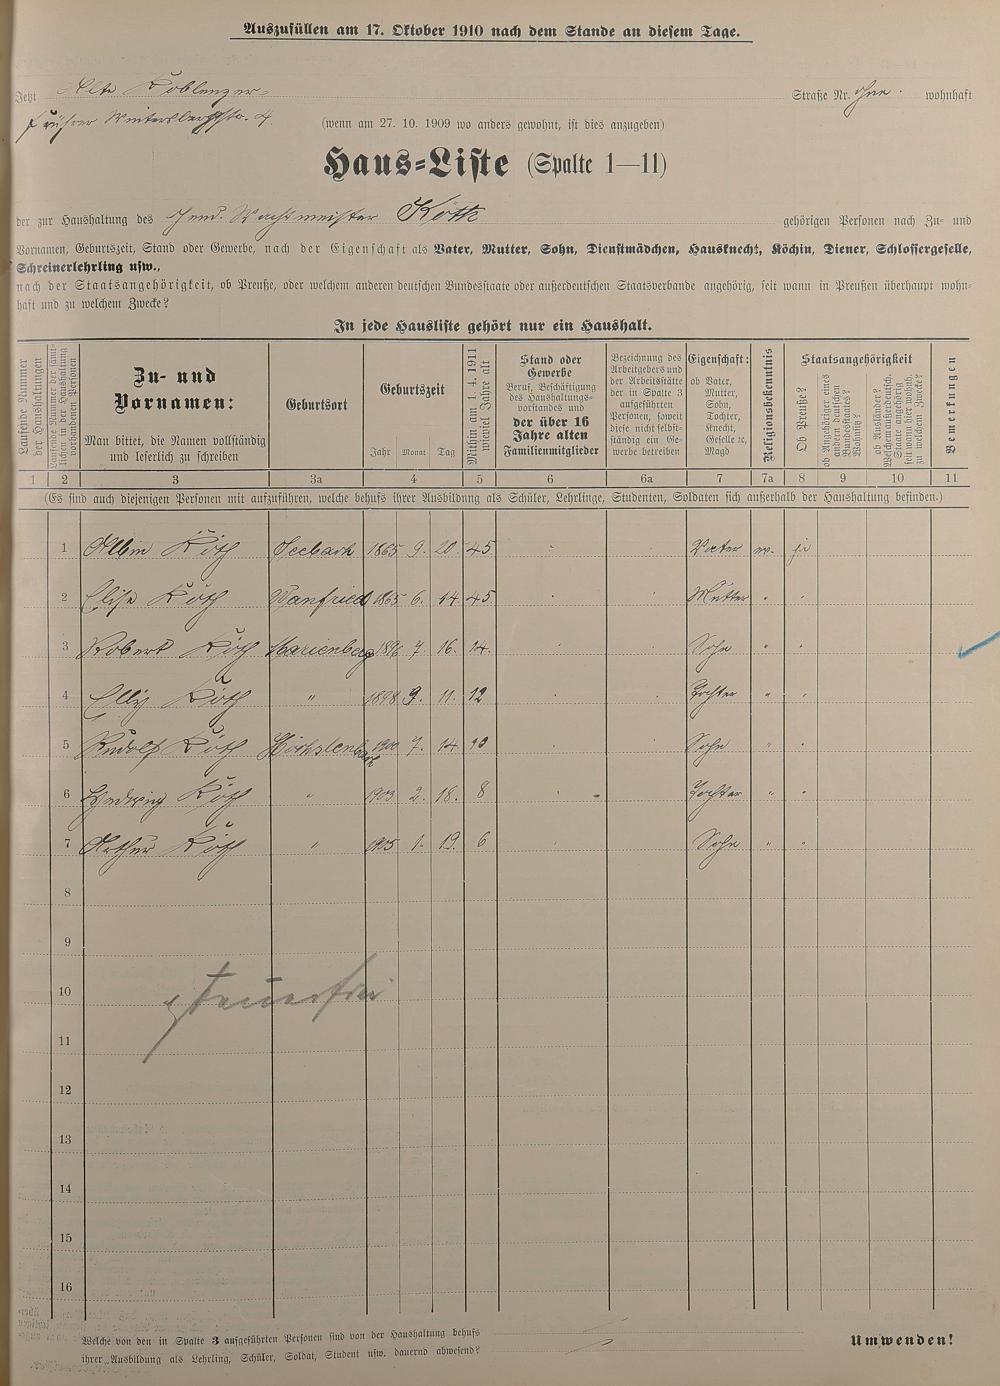 Auszufüllen am 17. Oktober 1910 nach dem Stande an diesem Tage.
Jetzt Alte Koblenzer- Straße Nr. ohne. wohnhaft
Früher Winterslergstr. 4.
(wenn am 27. 10. 1909 wo anders gewohnt, ist dies anzugeben)
Haus-Liste (Spalte 1—11)
der zur Haushaltung des Gend. Wachtmeister Köth gehörigen Personen nach Zu- und
Vornamen, Geburtszeit, Stand oder Gewerbe, nach der Eigenschaft als Vater, Mutter, Sohn, Dienstmädchen, Hausknecht, Köchin, Diener, Schlossergeselle,
Schreinerlehrling usw.,
nach der Staatsangehörigkeit, ob Preuße, oder welchem anderen deutschen Bundesstaate oder außerdeutschen Staatsverbande angehörig, seit wann in Preußen überhaupt wohn-
haft und zu welchem Zwecke?
In jede Hausliste gehört nur ein Haushalt.
Laufende Nummer der Haushaltungen
Laufende Nummer der sämtlichen in der Haushaltung vorhandenen Personen
Zu- und
Vornamen:
Man bittet, die Namen vollständig
und leserlich zu schreiben
Geburtsort
Geburtszeit
Jahr Monat Tag
Mithin am 1. 4. 1911 wieviel Jahre alt
Stand oder
Gewerbe
Beruf, Beschäftigung
des Haushaltungs-
vorstandes und
der über 16
Jahre alten
Familienmitglieder
Bezeichnung des
Arbeitgebers und
der Arbeitsstätte
der in Spalte 3
aufgeführten
Personen, soweit
diese nicht selbst-
ständig ein Ge-
werbe betreiben
Eigenschaft:
ob Vater,
Mutter,
Sohn,
Tochter,
Knecht,
Geselle ꝛc,
Magd
Religionsbekenntnis
Staatsangehörigkeit
Ob Preuße?
ob Angehöriger eines
andern deutschen
Bundesstaates?
Wohnsitz?
ob Ausländer?
Welchem außerdeutsch.
Staate angehörig
seit wann hier wohnh.
zu welchem Zwecke?
Bemerkungen
1 2 3 3a 4 5 6 6a 7 7a 8 9 10 11
(Es sind auch diejenigen Personen mit aufzuführen, welche behufs ihrer Ausbildung als Schüler, Lehrlinge, Studenten, Soldaten sich außerhalb der Haushaltung befinden.)
1 Albin Köth Seebach 1865 9. 20. 45. Vater ja
2 Elise Köth Wanfried 1865 6. 14 45. Mutter "
3 Robert Köth Marienberg 1896 7 16. 14. Sohn "
4 Elly Köth " 1898 9. 11. 12 Tochter "
5 Rudolf Köth 1900 7. 14 10 Sohn "
6 Hedwig Köth " 1903 2. 18. 8 Tochter "
7 Arthur Köth " 1905 1. 19. 6 Sohn "
8
9
10 steuerfrei
11
12
13
14
15
16
Welche von den in Spalte 3 aufgeführten Personen sind von der Haushaltung behufs
ihrer Ausbildung als Lehrling, Schüler, Soldat, Student usw. dauernd abwesend?
Umwenden!